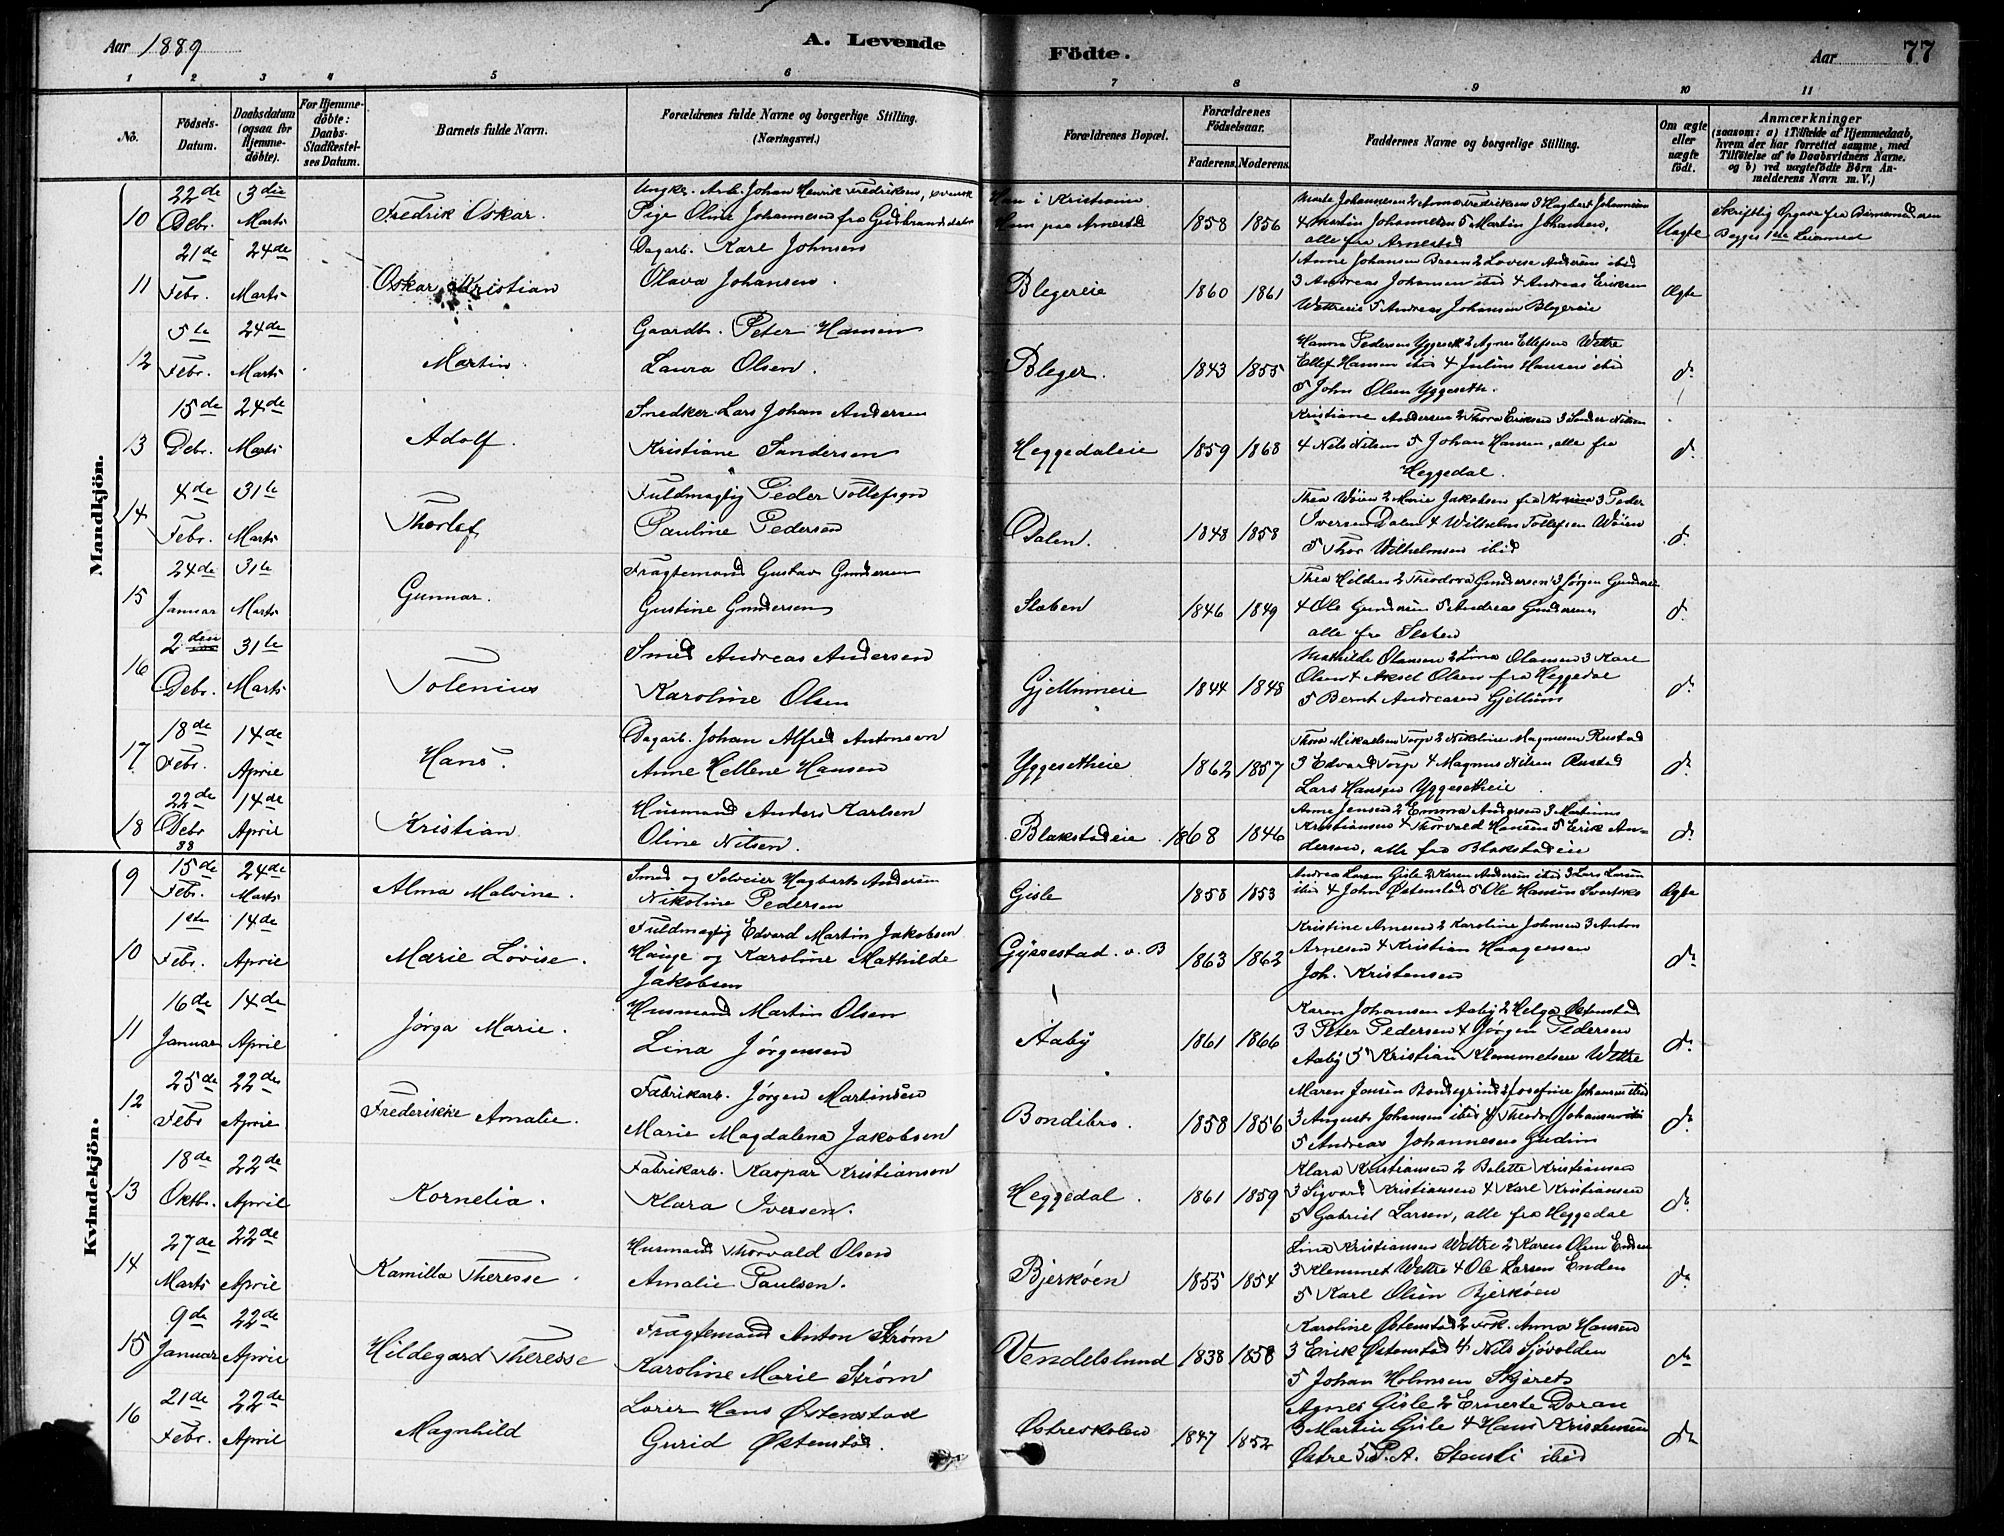 Aar 1889 A. Levende Födte. Aar 77
1 2 3 4 5 6 7 8 9 10 11
No. Födsels-Datum. Daabsdatum (ogsaa for Hjemmedöbte). For Hjemmedöbte: Daabs-Stadfæstelses Datum. Barnets fulde Navn. Forældrenes fulde Navne og borgerlige Stilling. (Næringsvei.) Forældrenes Bopæl. Forældrenes Födselsaar. Faderens. Moderens. Faddernes Navne og borgerlige Stilling. Om ægte eller uægte födt. Anmærkninger (saasom: a) i Tilfælde af Hjemmedaab, hvem der har forrettet samme, med Tilföielse af to Daabsvidners Navne. og b) ved uægtefödte Börn Anmelderens Navn m. V.)
Mandkjön.
10 22de Debr. 3die Marts Fredrik Oskar. Ungkr. Arb. Johan Henrik Fredriksen, svensk
Pige Oline Johannesen fra Gudbrandsdalen
Han i Kristiania
Hun paa Arnestd 1858 1856
4 Martin Johannesen 5 Martin Johansen,
alle fra Arnestad Uægte Skriftlig Opgave fra Barnemoderen
Begges 1ste Leiermaal
11 21de Febr. 24de Marts Oskar Kristian Dagarb. Karl Johnsen
Olava Johansen. Blegereie 1860 1861
1 Anne Johansen 2 Lovise Andersen ibid
3 Andreas Johansen ibid 4 Andreas Eriksen
Wettreeie 5 Andreas Johansen Blegereie Ægte
12 5te Febr. 24de Marts Martin. Gaardbr. Peter Hansen
Laura Olsen. Bleger. 1843 1855
Hanna Pedersen Yggeseth 2 Agnes Ellefsen Wettre
Ellef Hansen ibid 4 Julius Hansen ibid
5 John Olsen Yggeseth. do
13 15de Debr. 24de Marts Adolf. Snedker Lars Johan Andersen
Kristiane Sandersen Heggedaleie 1859 1868
Kristiane Andersen 2 Thora Eriksen 3 Sander Nilsen
4 Nils Nilsen 5 Johan Hansen, alle fra
Heggedal. do
14 4de Febr. 31te Marts Thorlef Fuldmægtig Peder Tollefsen
Pauline Pedersen Dalen. 1848 1858
Thea Wøien 2 Marie Jakobsen fra 3 Peder
Iversen Dalen 4 Wilhelm Tollefsen Wøien
5 Thor Wilhelmsen ibid do
15 24de Januar 31te Marts Gunnar. Fragtemand Gustav Gundersen
Gustine Gundersen Slaben 1846 1849
Thea Hilden 2 Theodora Gundersen 3 Jørgen Gundersen
4 Ole Gundersen 5 Andreas Gundersen,
alle fra Slaben do
16 2den Debr. 31te Marts Tolenius Smed Andreas Andersen
Karoline Olsen Gjellumeie 1844 1848
Mathilde Olausen 2 Lina Olausen 3 Karl
Olsen 4 Aksel Olsen fra Heggedal
5 Bernt Andreasen Gjellum do
17 18de Febr. 14de April Hans. Dagarb. Johan Alfred Antonsen
Anne Hellene Hansen Yggesetheie 1862 1857
Thora Mikaelsen Torp 2 Nikoline Magnusen Rustad
3 Edvard Torp 4 Magnus Nilsen Rustad
Lars Hansen Yggesetheie do
18 22de Debr 88 14de April Kristian Husmand Anders Karlsen
Oline Nilsen. Blakstadeie 1868 1846
Anne Jensen 2 Emma Andersen 3 Martinus
Kristiansen 4 Thorvald Hansen 5 Erik An-
dersen, alle fra Blakstadeie do
Kvindekjön.
9 15de Febr. 24de Marts Alma Malvine. Smed og Selveier Hagbart Andersen
Nikoline Pedersen Gisle 1858 1853
Andrea Larsen Gisle 2 Karen Andersen ibid 3 Lars Larsen
ibid 4 John Østenstad 5 Ole Hansen Ægte
10 1ste Febr. 14de April Marie Lovise. Fuldmægtig Edvard Martin Jakobsen
Hauge og Karoline Mathilde
Jakobsen Gyssestad v. B 1863 1862
Kristine Arnesen 2 Karoline Johnsen 3 Anton
Arnesen 4 Kristian Haagensen
Joh. Kristensen do
11 16de Januar 14de April Jørga Marie. Husmand Martin Olsen
Lina Jørgensen Aaby 1861 1866
Karen Johansen Aaby 2 Helga Østenstad
3 Peter Pedersen 4 Jørgen Pedersen
Aaby 5 Kristian Klemmetsen Wettre do
12 25de Febr 22de April Frederikke Amalie. Fabrikarb. Jørgen Martinsen
Marie Magdalena Jakobsen Bondibro. 1858 1856
Maren Jensen Bondegrind 2 Josefine Johansen ibid
3 August Johansen ibid 4 Theodor Johansen ibid
5 Andreas Johannesen Gudim do
13 18de Oktbr. 22de April Kornelia. Fabrikarb. Kaspar Kristiansen
Klara Iversen. Heggedal. 1861 1859
Klara Kristiansen 2 Bolette Kristiansen
3 Sigvard Kristiansen 4 Karl Kristiansen
5 Gabriel Larsen, alle fra Heggedal do
14 27de Marts 22de April Kamilla Theresse. Husmand Thorvald Olsen
Amalie Paulsen. Bjerkøen 1855 1854
Lina Kristiansen Wettre 2 Karen Olsen Enden
3 Klemmet Wettre 4 Ole Larsen Enden
5 Karl Olsen Bjerkøen do
15 9de Januar 22de April Hildegard Theresse Fragtemand Anton Strøm
Karoline Marie Strøm Vendelslund 1838 1858
Karoline Østenstad 2 Frk. Anna Hansen
3 Erik Østenstad 4 Nils Sjøvolden
5 Johan Holmsen Skjæret do
16 21de Febr. 22de April Magnhild Lærer Hans Østenstad
Gurid Østenstad. Østreskolen 1847 1852
Agnes Gisle 2 Erneste Doran
3 Martin Gisle 4 Hans Kristensen
Østre 5 P. A. Stensli ibid do